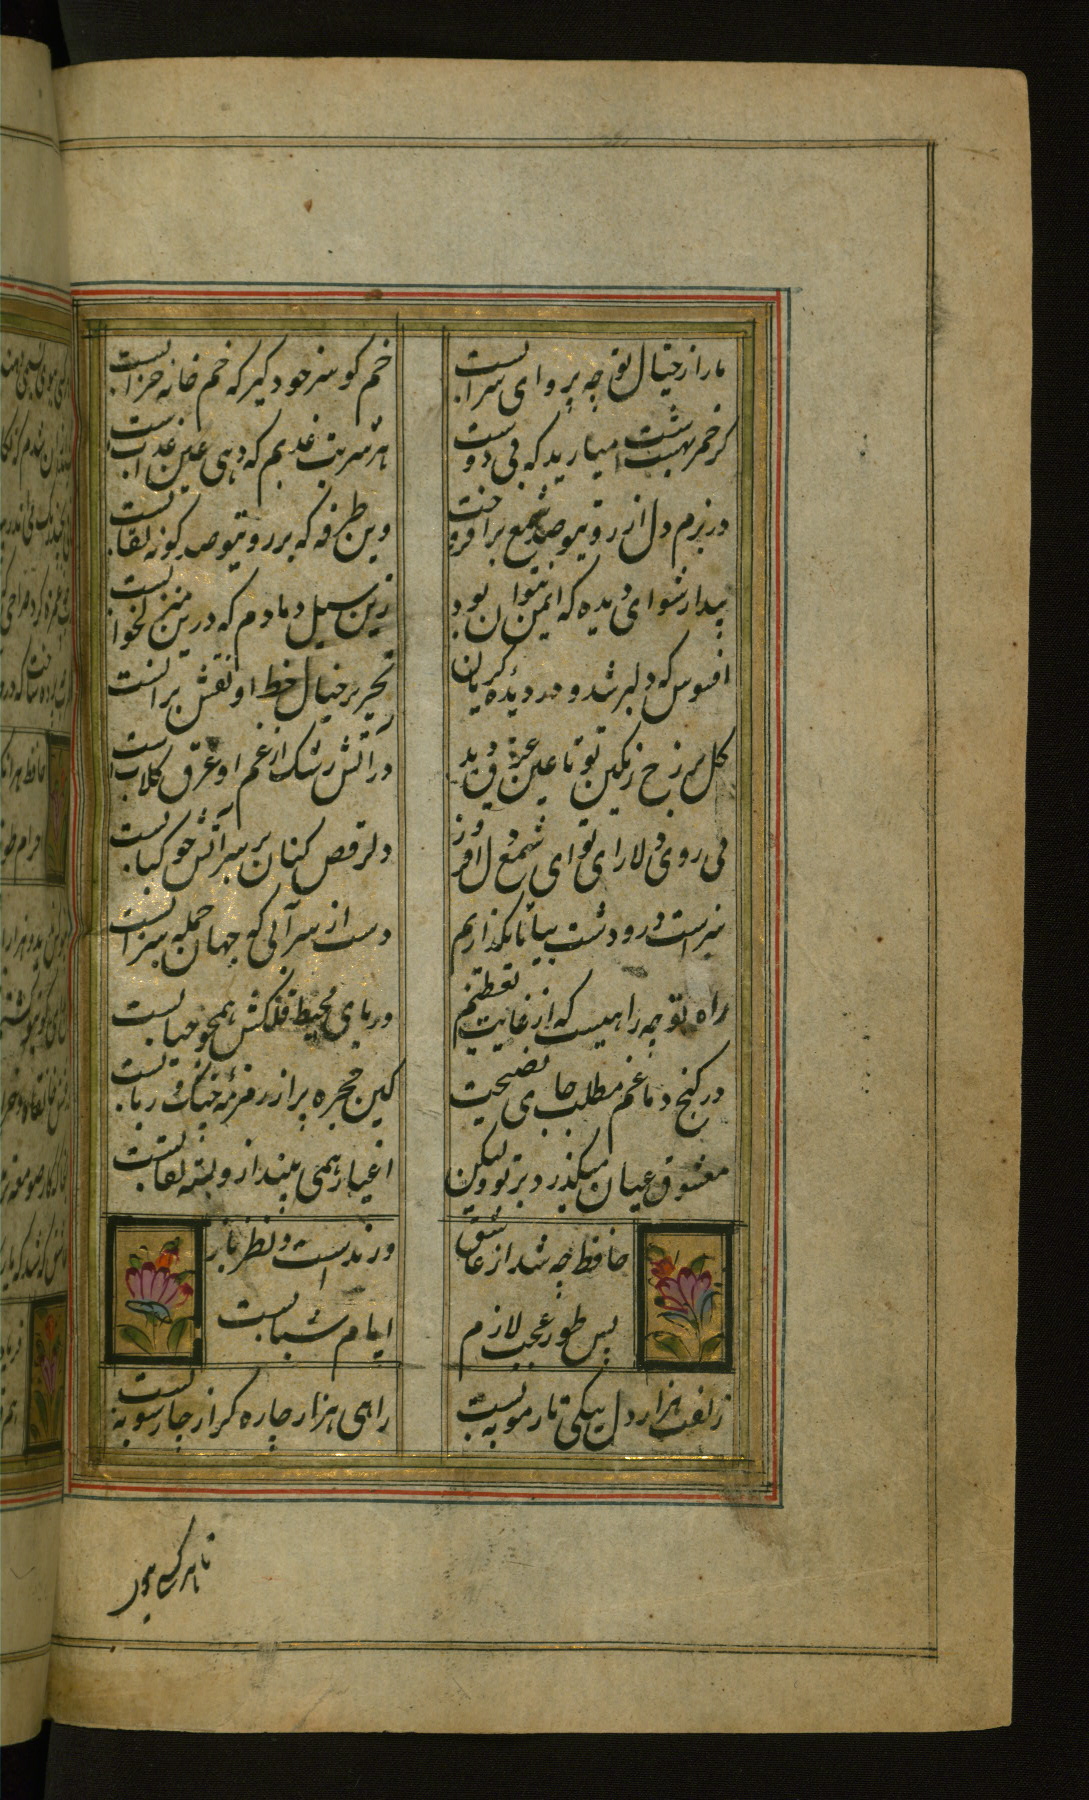 مارا ز خیال تو چه پروای شرابست
خم کو سر خود گیر که خم خانه خرابست
گر خمر بهشت است میارید که بی دوست
هر شربت عذبم که دهی عین عذابست
در بزم دل از روی تو صد شمع برافروخت
وین طرفه که بر روی تو صد گونه نقابست
بیدار شو ای دیده که ایمن نتوان بود
زین سیل دمادم که درین منزل خوابست
افسوس که دلبر شد و در دیدهٔ گریان
تحریر خیال خط او نقش بر آبست
گل بر رخ رنگین تو تا عین عرق دید
در آتش رشک از غم او غرق گلابست
بی روی دلارای تو ای شمع دل افروز
دل رقص کنان بر سر آتش چو کبابست
سبز است در و دشت بیا تا نگذاریم
دست از سر آبی که جهان جمله سرابست
راه تو چه راهیست که از غایت تعظیم
دریای محیط فلکش همچو حبابست
در کنج دماغم مطلب جای نصیحت
کین حجره پر از زمزمهٔ چنگ و ربابست
معشوق عیان میگذرد بر تو ولیکن
اغیار همی بیند از و بسته نقابست
حافظ چه شد ار عاشق
و رندست و نظر باز
بس طور عجب لازم
ایام شبابست
زلفت هزار دل بیکی تار مو ببست
راهی هزار چاره گر از چار سو ببست
تا هر کسی ببوی